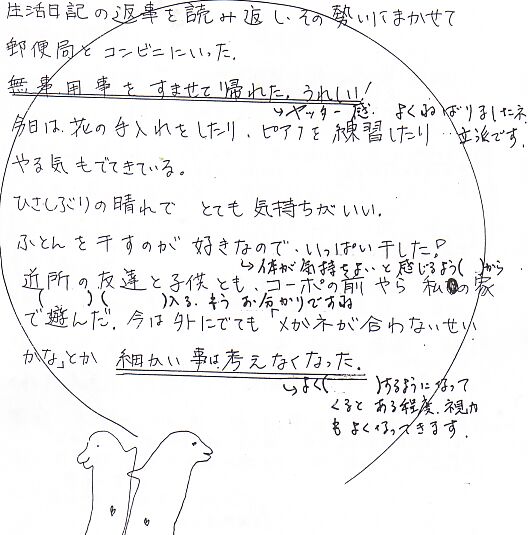 生活日記の返事を読み返し、その勢いにまかせて
郵便局とコンビニにいった。
無事用事をすませて帰れた。うれしい!
→ヤッター感. よくねばりましたネ
立派です。
今日は、花の手入れをしたり、ピアノを練習したり
やる気もでてきている。
ひさしぶりの晴れで とても気持ちがいい.
ふとんを干すのが好きなので、いっぱい干した!
→体が気持をよいと感じるよう( )から
近所の友達と子供とも、コーポの前やら私の家
( )( )入る。もうお分かりですね
で遊んだ。今は外にでても「メガネが合わないせい
かな」とか 細かい事は考えなくなった.
→よく( )するようになって
くると ある程度、視力
もよくなってきます.